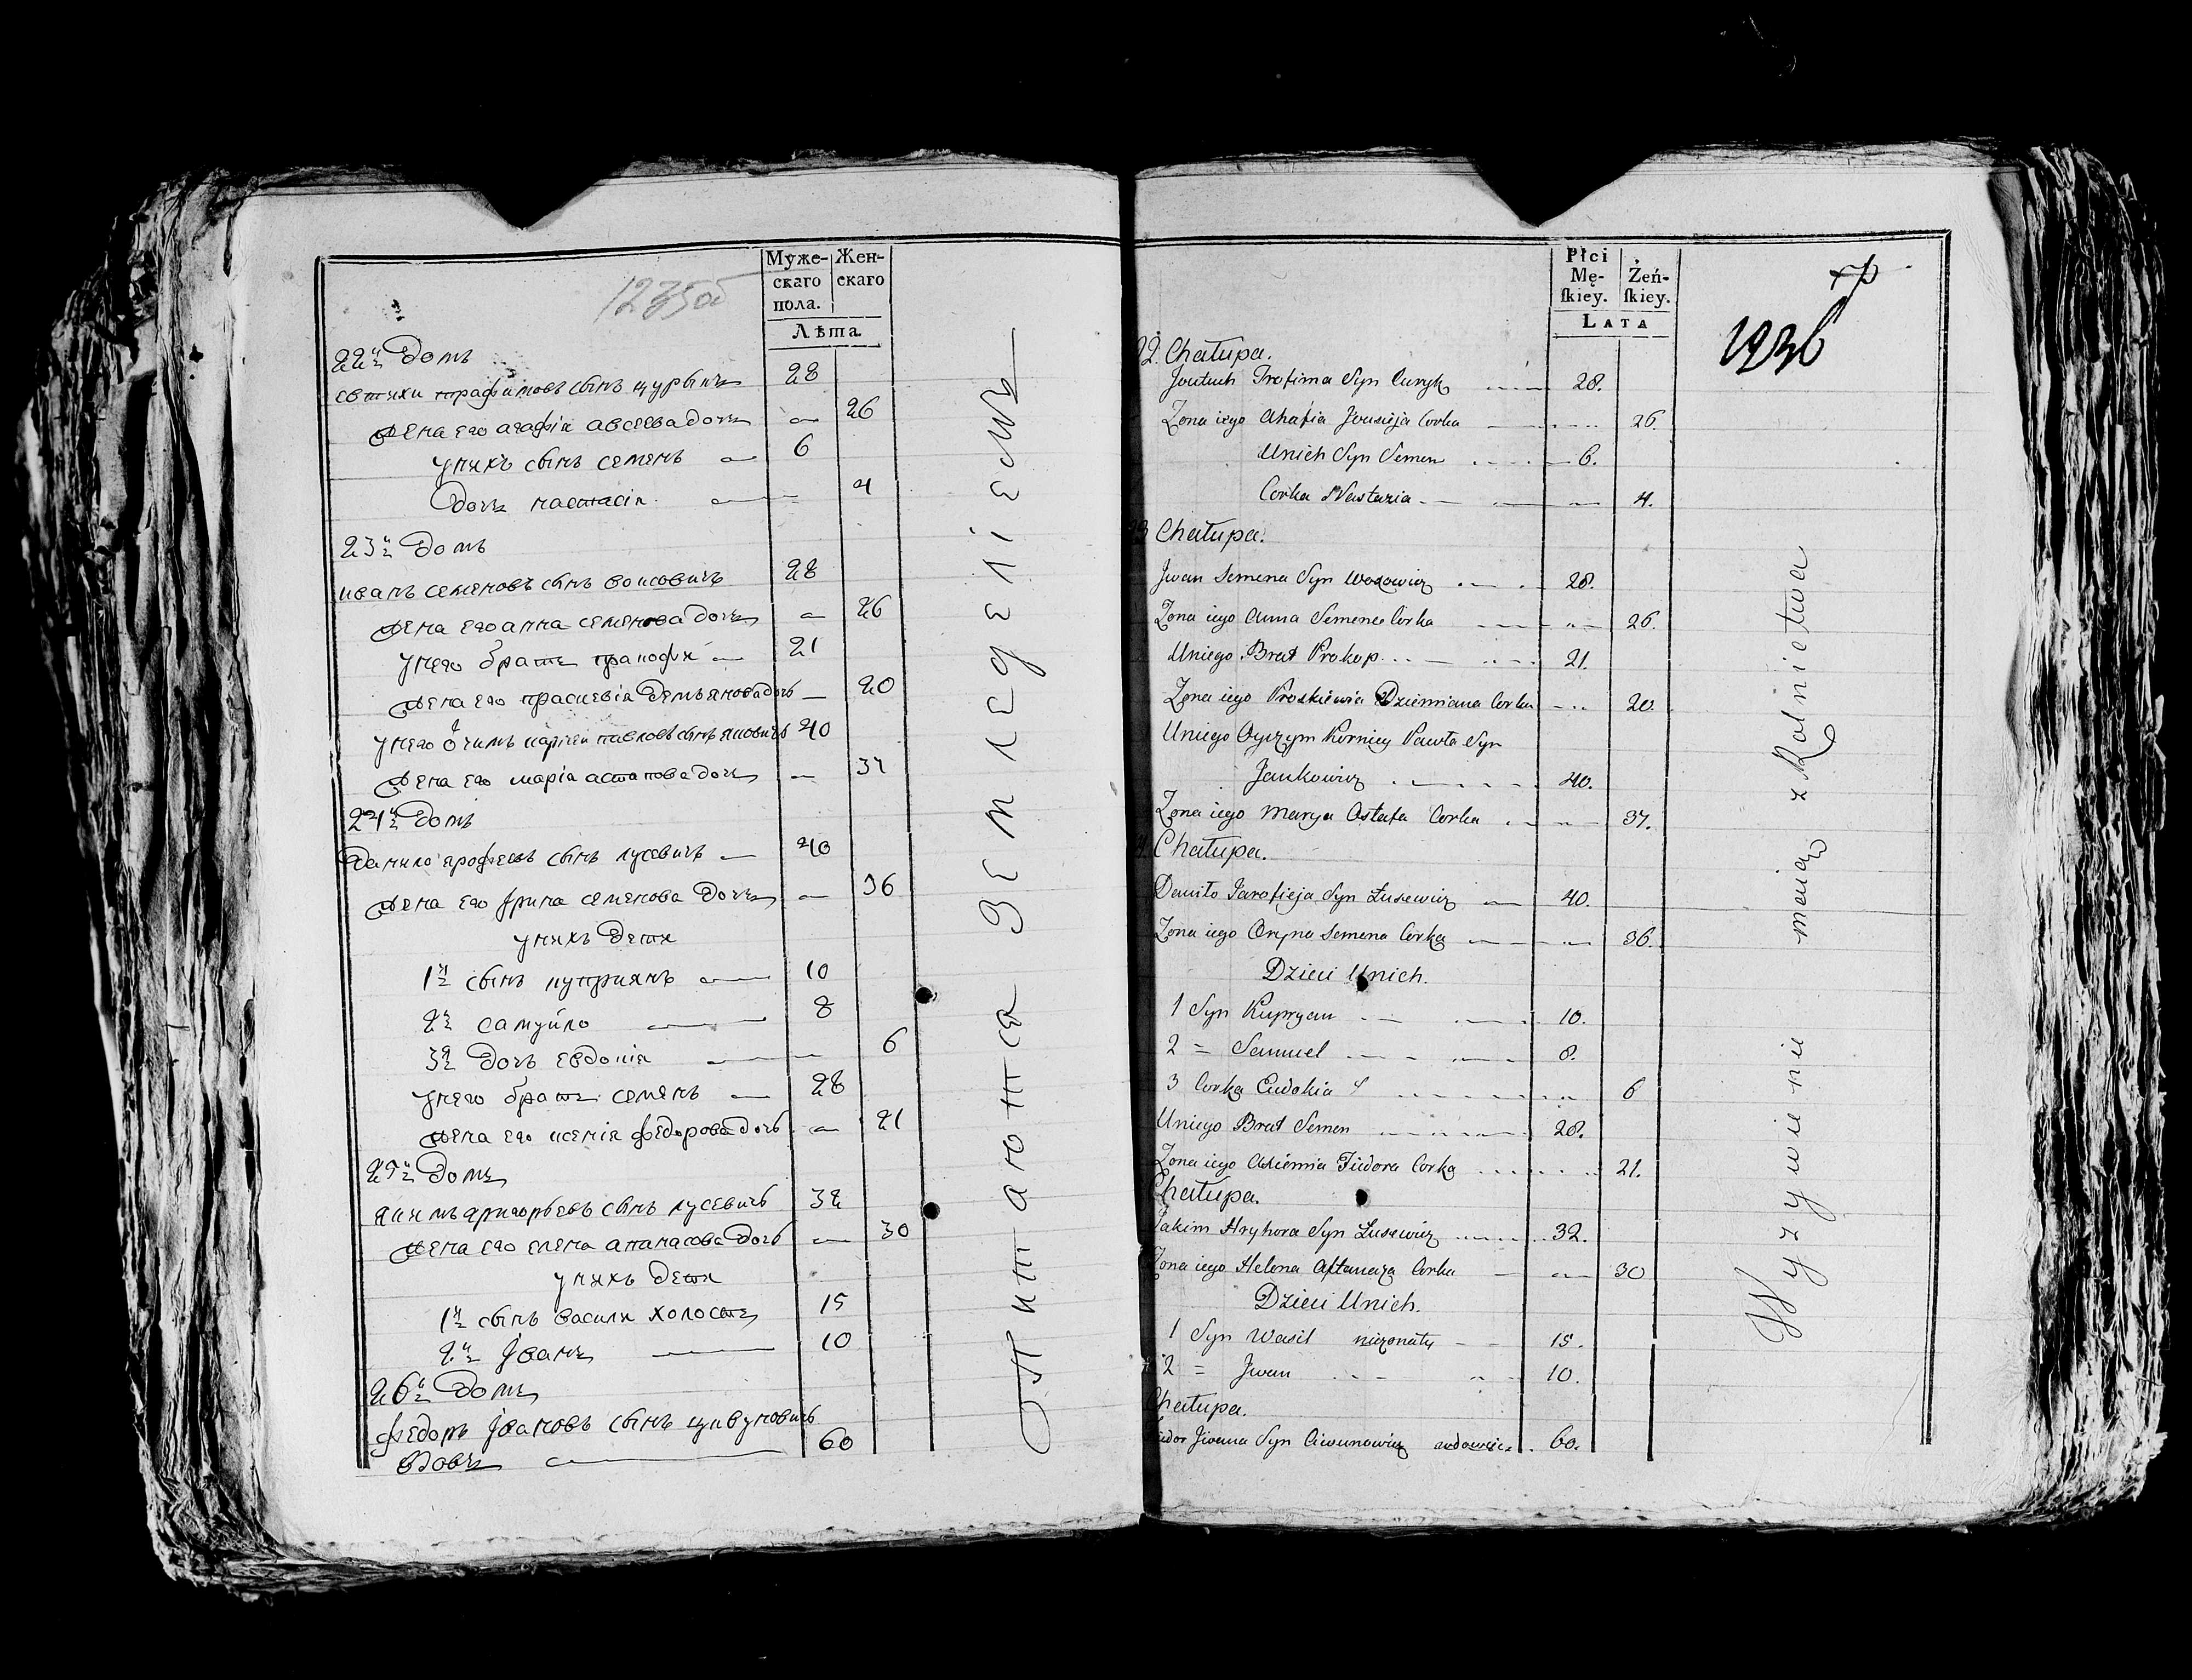 1235об
Муже-
скаго
пола.
Жен-
скаго
Лѣта.
22й Домъ
евтихи трафимовъ сынъ цурыкъ 28
жена его агафiя авсеева дочъ — 26
у нихъ сынъ семенъ — 6
дочъ настасiя — 4
23й Домъ
иванъ семеновъ сынъ воисовичъ 28
жена его анна семенова дочъ — 26
у него братъ пракофи — 21
жена его праскевiя демъянова дочъ — 20
у него очимъ карнеи павловъ сынъ янковичъ 40
жена его марiя астапова дочъ — 37
24й Домъ
Данило ярофеевъ сынъ лусевичъ — 40
жена его Ярина семенова Дочъ — 36
у нихъ Дети
1й сынъ куприянъ — 10
2й самуйло — 8
3я Дочъ евдокiя — 6
у него братъ семенъ — 28
жена его ксенiя федорова дочъ — 21
25й Домъ
якимъ григорьевъ сынъ лусевичъ 32
жена его елена апанасова Дочъ — 30
у нихъ дети
1й сынъ васили холостъ 15
2й Iванъ — 10
26й Домъ
федоръ Iвановъ сынъ цивуновичъ
вдовъ — 60
питаютса земледелiемъ
Płci
Mę-
ſkiey.
Żeń-
ſkiey.
LATA
1236
22. Chałupa.
Jewtuch Trofima Syn Curyk 28.
Zona iego Ahafia Jewsieja Corka 26.
Unich Syn Semen 6.
Corka Nastazia 4.
23 Chałupa.
Jwan Semena Syn Wosowicz 28.
Zona iego Anna Semena Corka 26.
Uniego Brat Prokop 21.
Zona iego Proskiewia Dziemiana Corka 20.
Uniego Oyczym Korniey Pawła Syn
Jankowicz 40.
Zona iego Marya Ostafa Corka 37.
4 Chałupa.
Daniło Jarofieja Syn Łusewicz 40.
Zona iego Oryna Semena Corka 36.
Dzieci Unich.
1 Syn Kupryan 10.
2 = Samuel 8.
3 Corka Eudokia 6
Uniego Brat Semen 28.
Zona iego Axiemia Fiedora Corka 21.
Chałupa.
Jakim Hryhora Syn Łusewicz 32.
Zona iego Helena Aftanaza Corka 30
Dzieci Unich.
1 Syn Wasil niezonaty 15.
2 = Jwan 10.
Chałupa.
Fiedor Jwana Syn Ciwunowicz wdowiec 60.
Wyzywienie maiaą z Rolnictwa